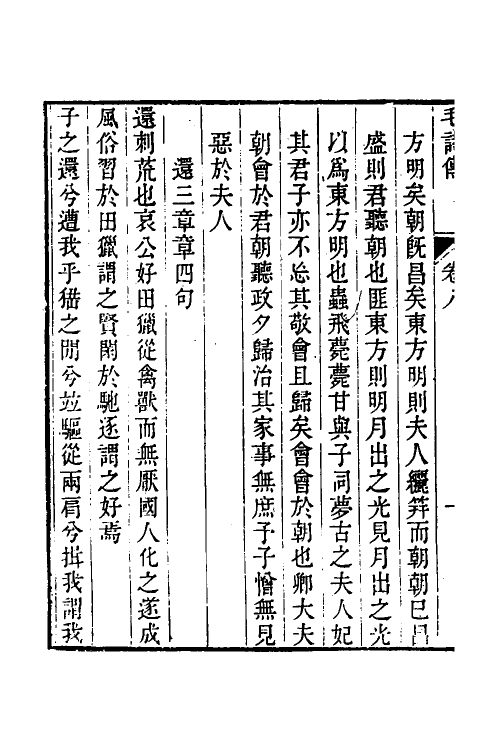 毛詩傳　卷八　一
方明矣朝旣昌矣東方明則夫人纚笄而朝朝已昌
盛則君聽朝也匪東方則明月出之光見月出之光
以爲東方明也蟲飛薨薨甘與子同夢古之夫人妃
其君子亦不忘其敬會且歸矣會會於朝也卿大夫
朝會於君朝聽政夕歸治其家事無庶子子憎無見
惡於夫人
還三章章四句
還刺荒也哀公好田獵從禽獸而無厭國人化之遂成
風俗習於田獵謂之賢閑於馳逐謂之好焉
子之還兮遭我乎猫之閒兮並驅從兩肩兮揖我謂我